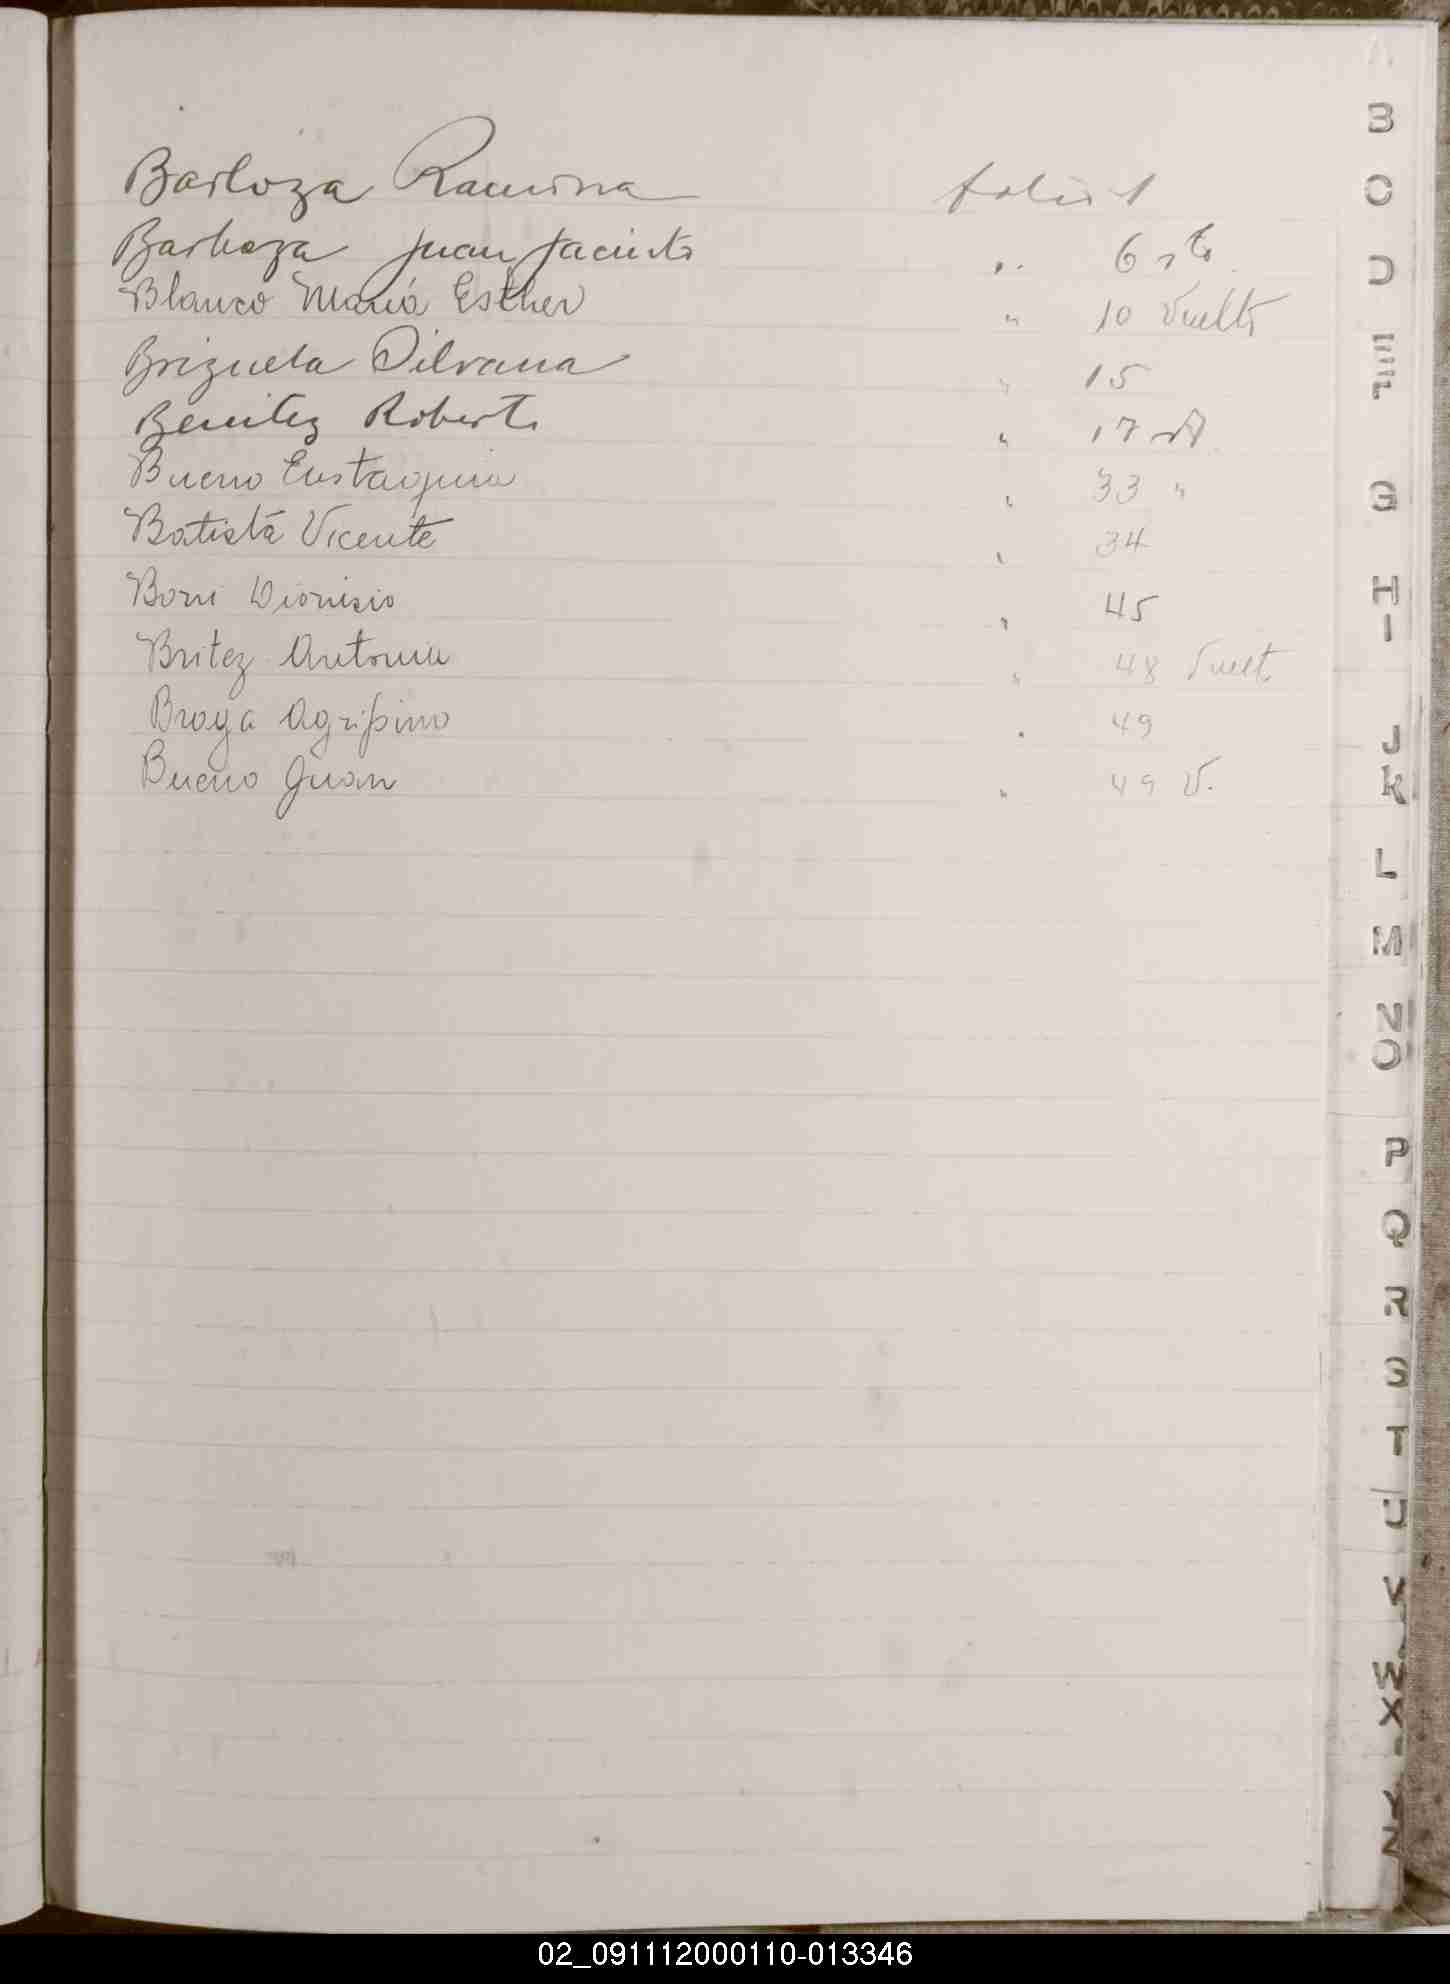 Barboza Ramona folio 1
Barboza Juan Jacinto " 6 vto
Blanco María Esther " 10 Vuelto
Brizuela Silvana " 15
Benitez Roberto " 17
Bueno Eustaquia " 33 "
Batista Vicente " 34
Borri Dionisio " 45
Britez Antonia " 48 Vuelt
Braga Agripino " 49
Bueno Juan " 49 V.
A
B
C
D
E
F
G
H
I
J
K
L
M
N
O
P
Q
R
S
T
U
V
W
X
Y
Z
02_091112000110-013346